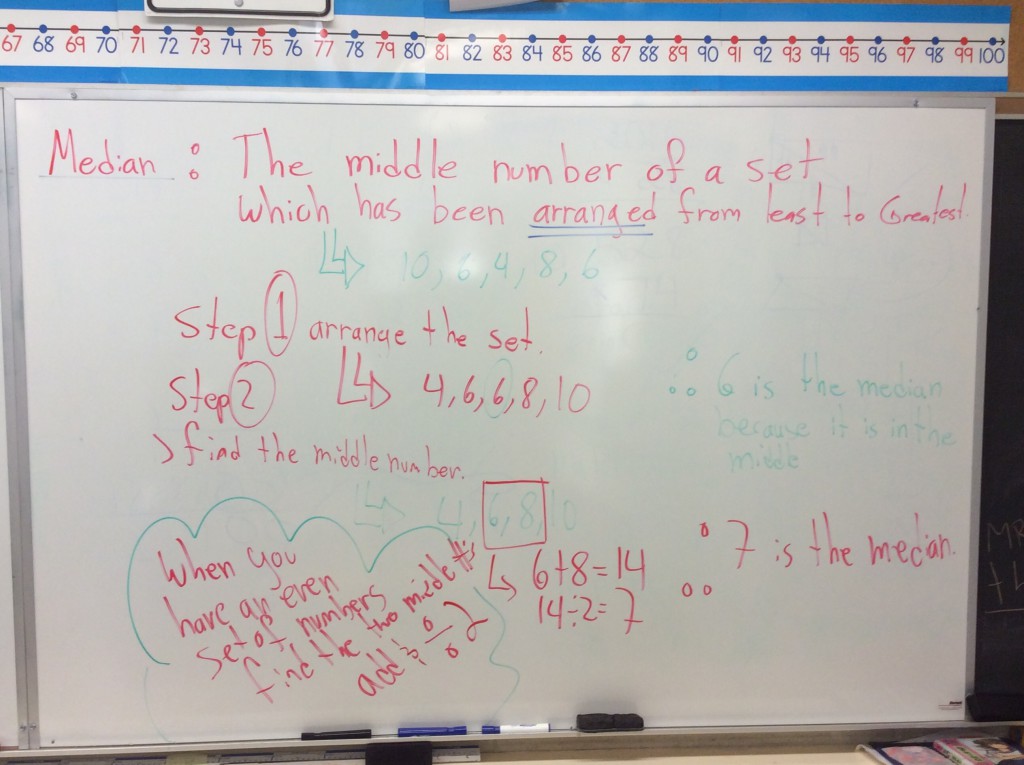 67 68 69 70 71 72 73 74 75 76 77 78 79 80 81 82 83 84 85 86 87 88 89 90 91 92 93 94 95 96 97 98 99 100
Median : The middle number of a set
which has been arranged from least to Greatest.
10, 6, 4, 8, 6
Step 1 arrange the set.
Step 2
4, 6, 6, 8, 10
find the middle number.
∴ 6 is the median
because it is in the
middle
4, 6, 8, 10
6+8=14
14÷2=7
∴ 7 is the median.
When you
have an even
set of numbers
find the two middle #'s
add & ÷ 2